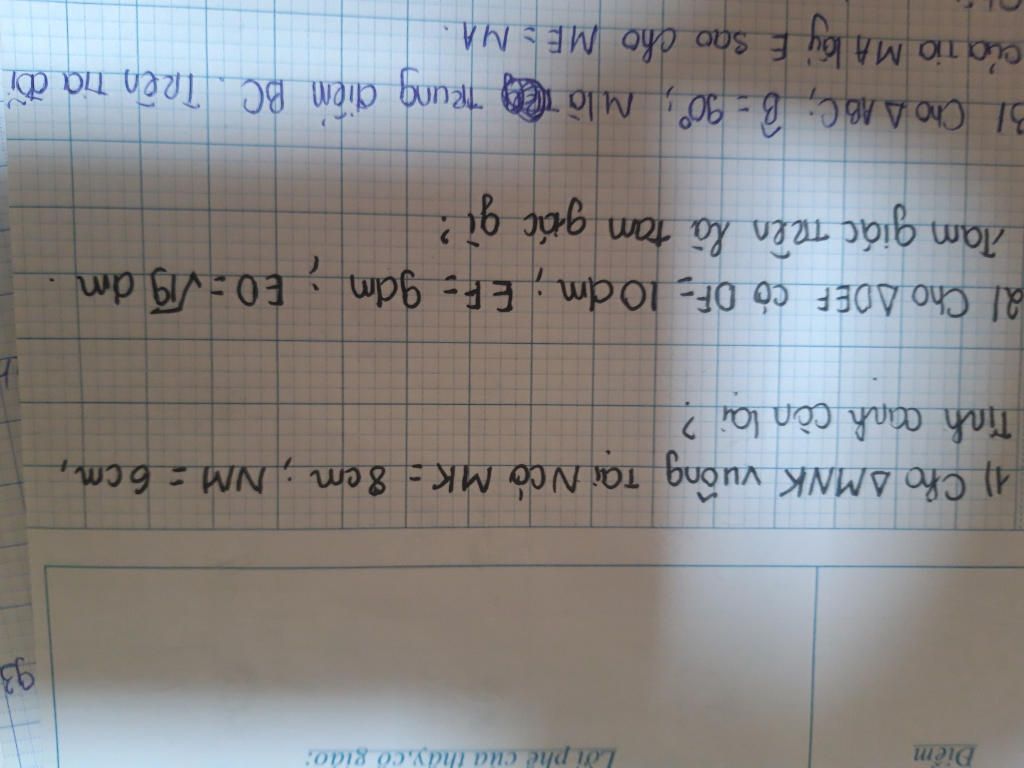 Điểm
Lời phê của thầy, cô giáo:
93
1) Cho ΔMNK vuông tại N có MK = 8cm; NM = 6cm,
Tính cạnh còn lại?
2) Cho ΔDEF có DF = 10dm; EF = 9dm; ED = √19 dm.
Tam giác trên là tam giác gì?
3) Cho ΔABC; B̂ = 90°; M là trung điểm BC. Trên tia đối
của tia MA lấy E sao cho ME = MA.